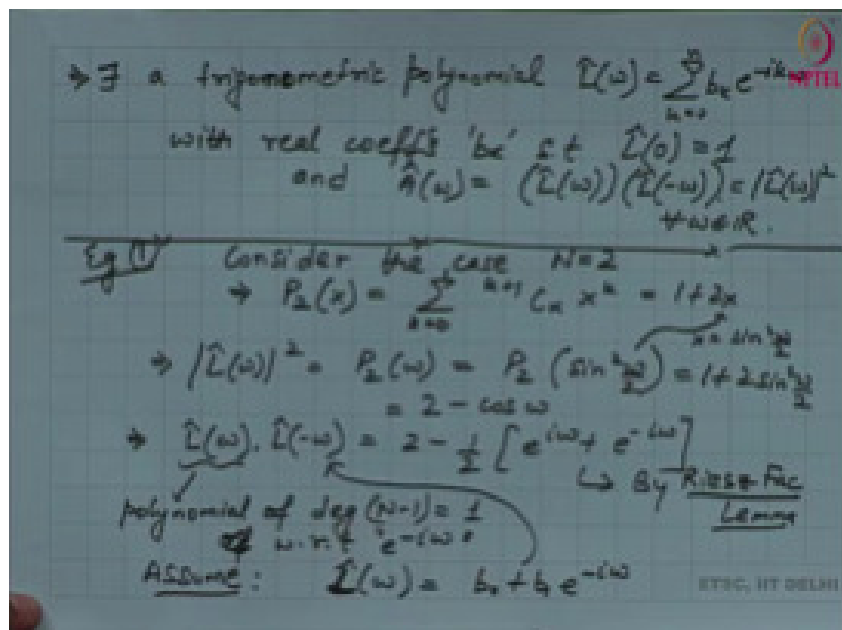 ⇒ ∃ a trigonometric polynomial L̂(ω) = Σ_{k=0}^{n} b_k e^{-ik
NPTEL
with real coeffs 'b_k' st L̂(0) = 1
and Â(ω) = (L̂(ω))(L̂(-ω)) = |L̂(ω)|²
∀ω∈R.
Eg ① Consider the case N=2
→ P₂(x) = Σ_{k=0}^{1} ^{k+1}C_k x^k = 1+2x
x = sin² ω/2
→ |L̂(ω)|² = P₂(ω) = P₂(sin² ω/2) = 1+2sin² ω/2
= 2 - cos ω
→ L̂(ω). L̂(-ω) = 2 - 1/2 [e^{iω} + e^{-iω}]
↳ By Riesz Fac
Lemma
polynomial of deg (N-1) = 1
w.r.t 'e^{-iω}'
Assume: L̂(ω) = b₀ + b₁ e^{-iω}
ETSC, IIT DELHI